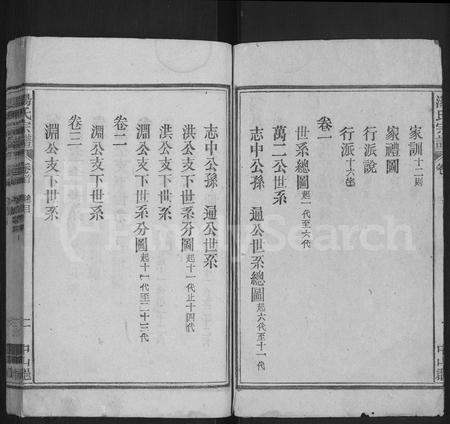 湯氏宗譜
卷首
中山郡
家訓十二則
家禮圖
行派說
行派十六條
卷一
世系總圖起一代至六代
萬二公世系
志中公孫 逼公世系總圖起六代至十一代
志中公孫 逼公世系
洪公支下世系分圖起十一代止十四代
洪公支下世系
淵公支下世系分圖起十一代至二十三代
卷二
淵公支下世系
卷三
淵公支下世系
湯氏宗譜
卷首
總目
二
中山郡
FamilySearch